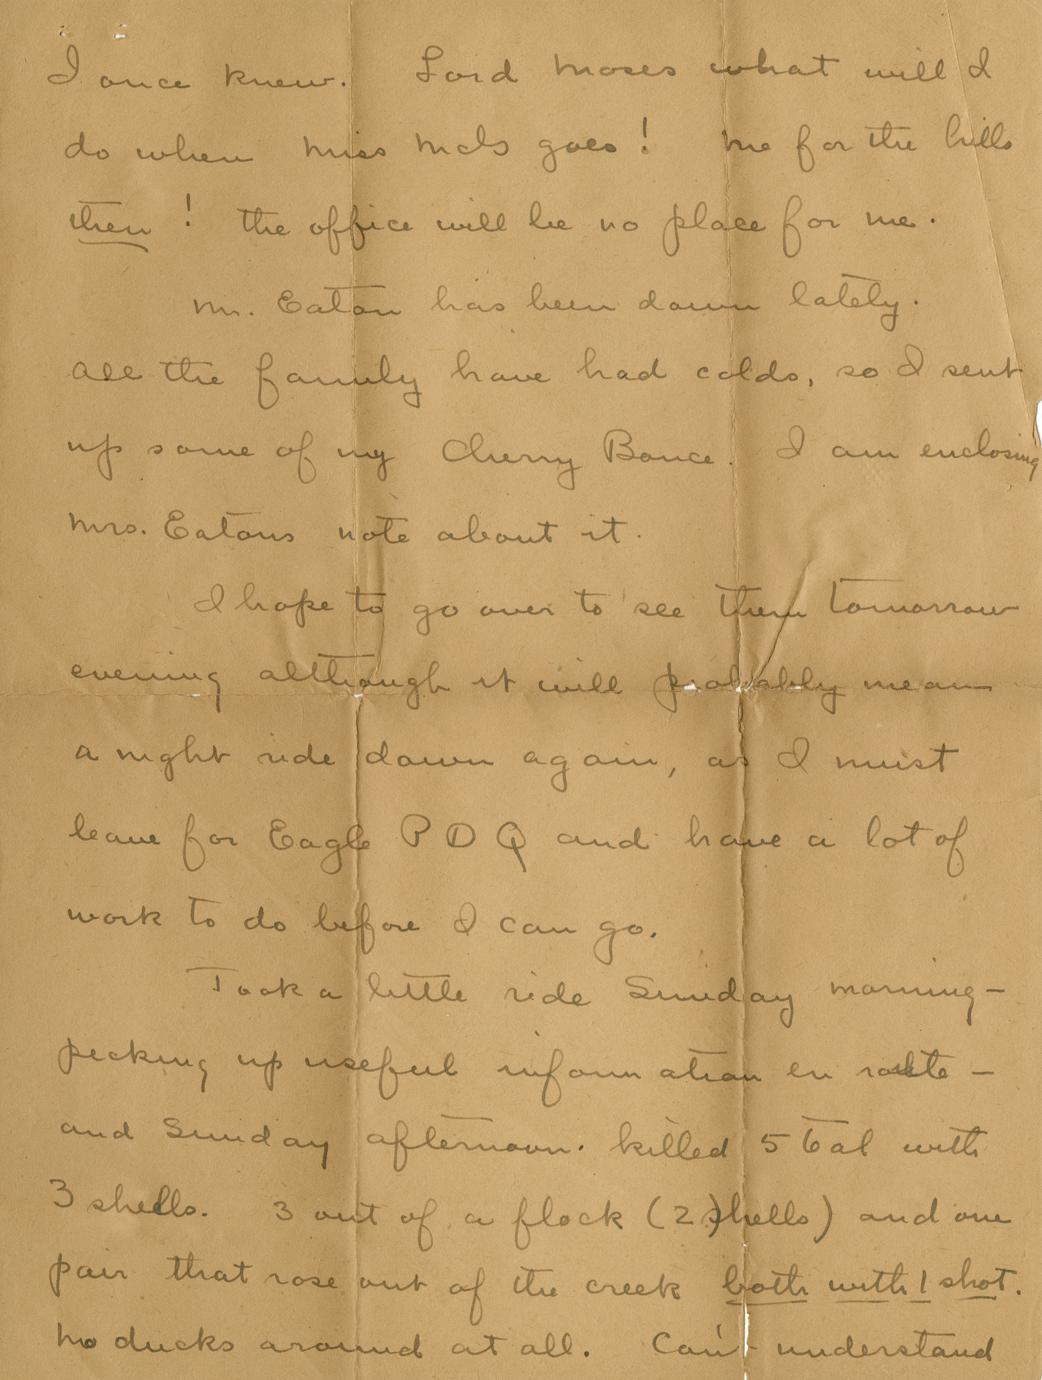 I once knew. Lord Moses what will I
do when Miss McG goes! Me for the hills
then! the office will be no place for me.
Mr. Eaton has been down lately.
All the family have had colds, so I sent
up some of my Cherry Bounce. I am enclosing
Mrs. Eatons note about it.
I hope to go over to see them tomorrow
evening although it will probably mean
a night ride down again, as I must
leave for Eagle P D Q and have a lot of
work to do before I can go.
Took a little ride Sunday morning -
pecking up useful information en route -
and Sunday afternoon. killed 5 with
3 shells. 3 out of a flock (2 shells) and one
pair that rose out of the creek both with 1 shot.
No ducks around at all. Can't understand